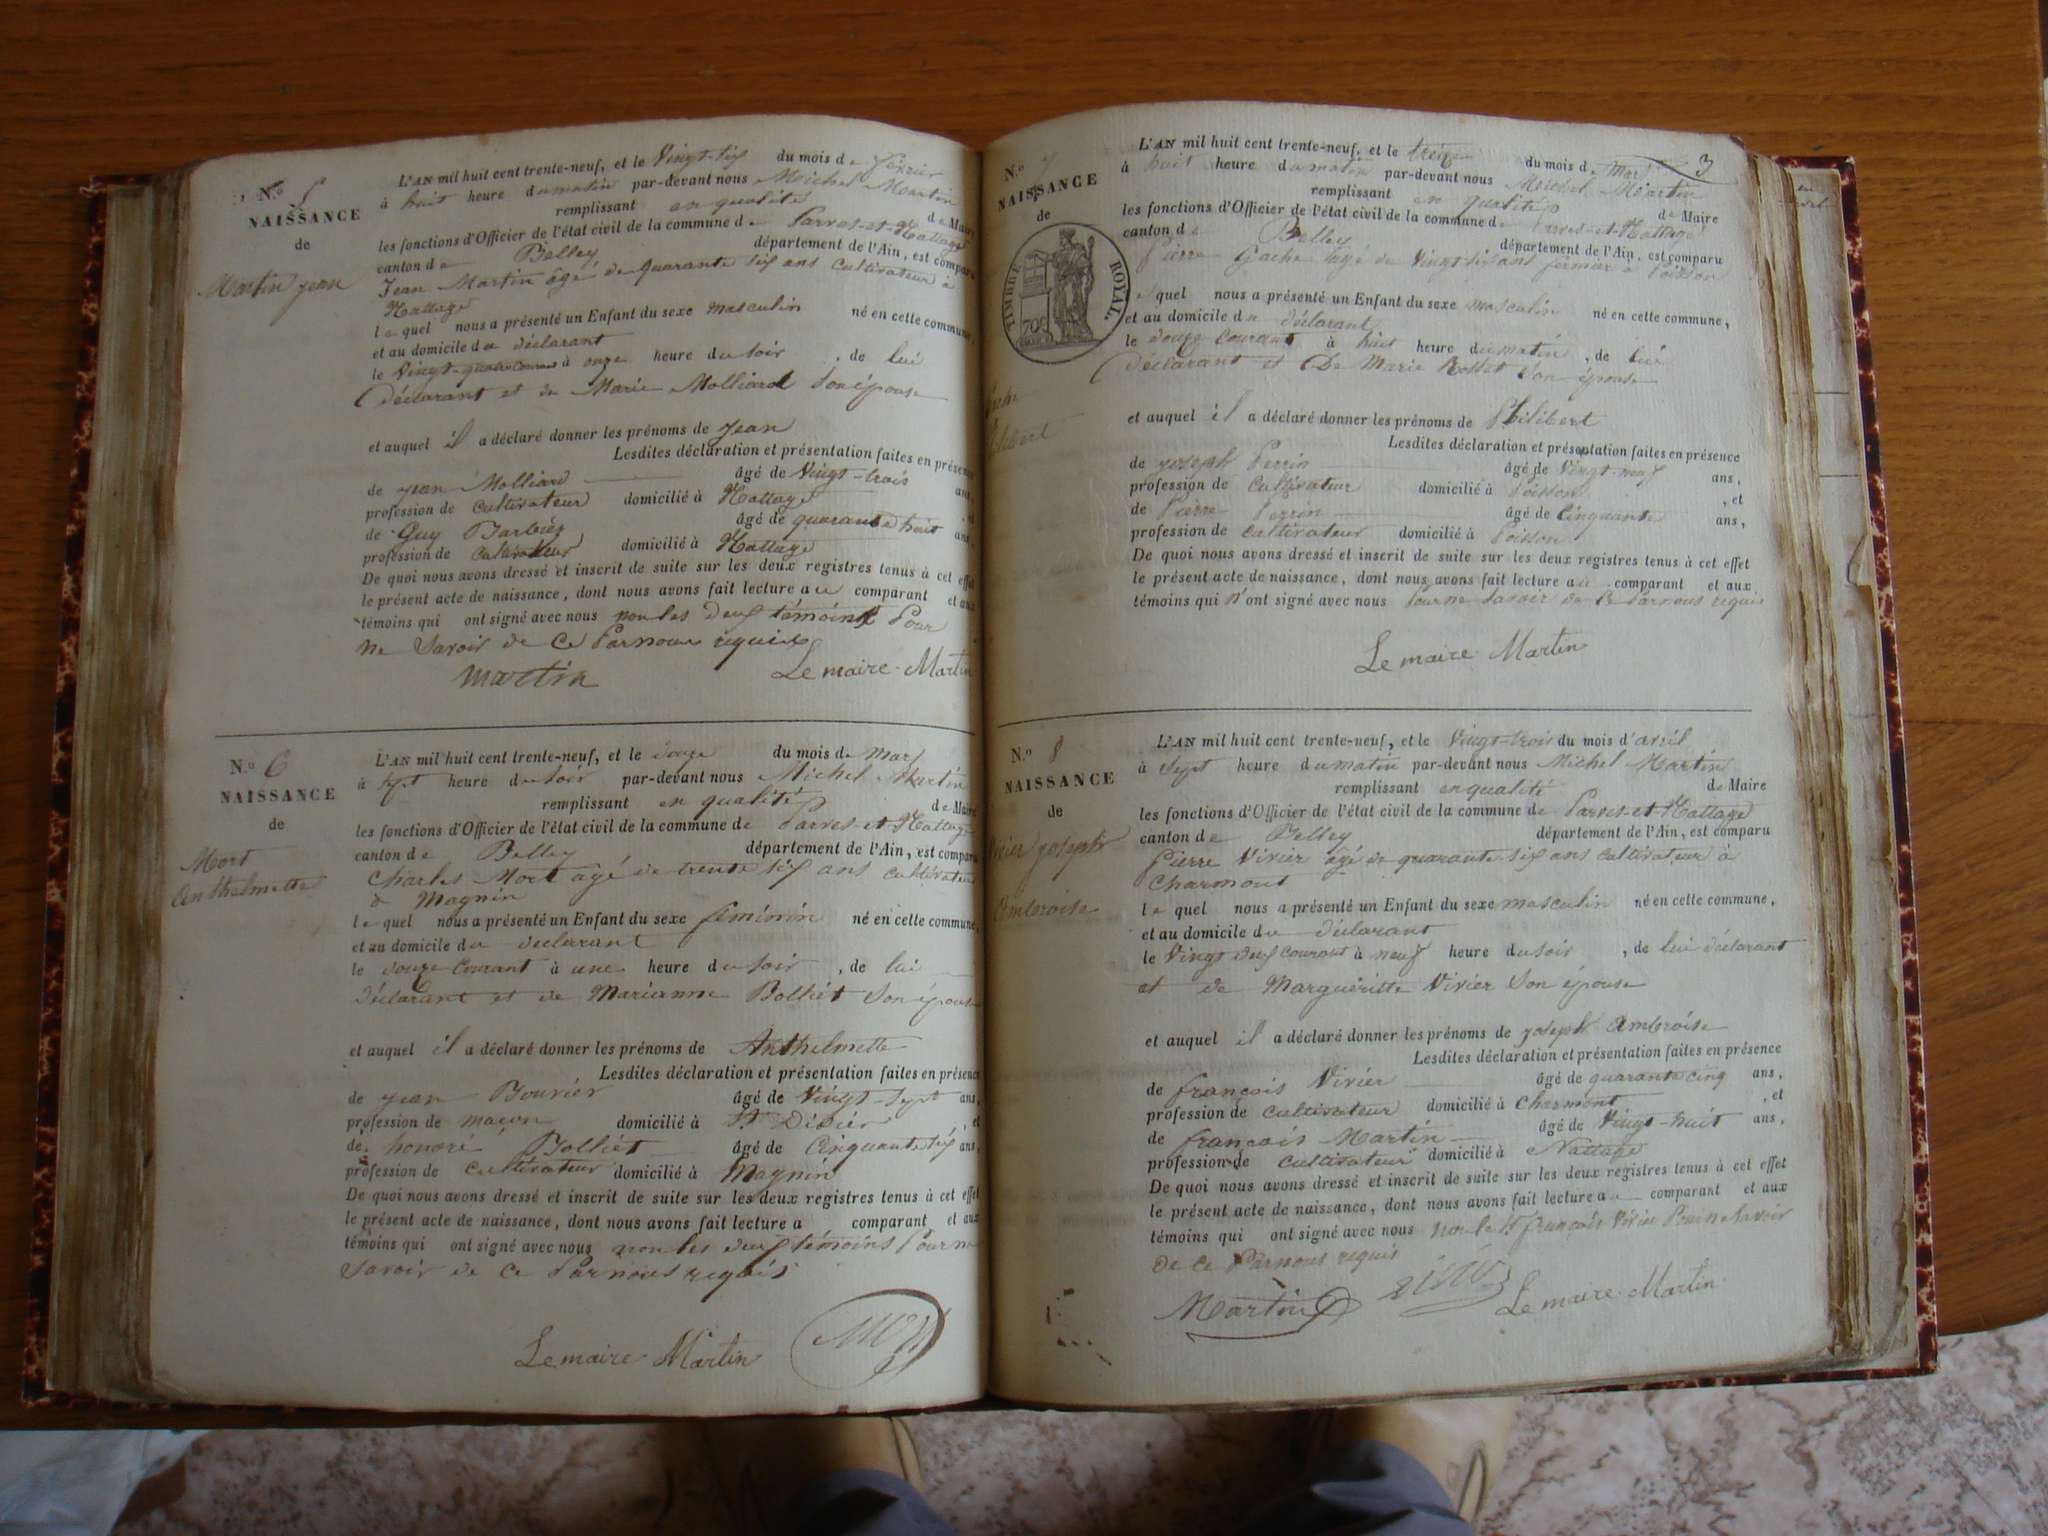 N.o 5
NAISSANCE
de
Martin jean
L'AN mil huit cent trente-neuf, et le Vingt-six du mois de février
à huit heure du matin par-devant nous Michel Martin
remplissant en qualité de Maire
les fonctions d'Officier de l'état civil de la commune de Parves-et-Nattage
canton de Belley département de l'Ain, est comparu
Jean Martin âgé de Quarante six ans cultivateur à
Nattage
lequel nous a présenté un Enfant du sexe masculin né en cette commune,
et au domicile du déclarant
le Vingt-quatre courant à onze heure du soir, de lui
Déclarant et de Marie Molliard son épouse
et auquel il a déclaré donner les prénoms de jean
Lesdites déclaration et présentation faites en présence
de jean Molliard âgé de Vingt-trois ans,
profession de cultivateur domicilié à Nattage, et
de Guy Barbier âgé de quarante huit ans,
profession de cultivateur domicilié à Nattage
De quoi nous avons dressé et inscrit de suite sur les deux registres tenus à cet effet
le présent acte de naissance, dont nous avons fait lecture au comparant et aux
témoins qui ont signé avec nous non les deux témoins Pour
ne Savoir de ce Par nous requis
martin Le maire Martin
N.o 6
NAISSANCE
de
Mort
Anthelmette
L'AN mil huit cent trente-neuf, et le douze du mois de mars
à sept heure du soir par-devant nous Michel Martin
remplissant en qualité de Maire
les fonctions d'Officier de l'état civil de la commune de Parves-et-Nattage
canton de Belley département de l'Ain, est comparu
Charles Mort agé de trente six ans cultivateur
à Magnin
lequel nous a présenté un Enfant du sexe féminin né en cette commune,
et au domicile du déclarant
le douze courant à une heure du soir, de lui
déclarant et de Marianne Bolliet Son épouse
et auquel il a déclaré donner les prénoms de Anthelmette
Lesdites déclaration et présentation faites en présence
de jean Bouvier âgé de Vingt-Sept ans,
profession de maçon domicilié à St Didier, et
de honoré Bolliet âgé de Cinquante six ans,
profession de cultivateur domicilié à Magnin
De quoi nous avons dressé et inscrit de suite sur les deux registres tenus à cet effet
le présent acte de naissance, dont nous avons fait lecture a comparant et aux
témoins qui ont signé avec nous non les deux témoins Pour ne
Savoir de ce Par nous requis
Le maire Martin
3
N.o 7
NAISSANCE
de
TIMBRE ROYAL.
70c
L'AN mil huit cent trente-neuf, et le treize du mois de Mars
à huit heure du matin par-devant nous Michel Martin
remplissant en qualité de Maire
les fonctions d'Officier de l'état civil de la commune de Parves-et-Nattage
canton de Belley département de l'Ain, est comparu
Pierre Gache âgé de Vingt-six ans fermier à Poisson
lequel nous a présenté un Enfant du sexe masculin né en cette commune,
et au domicile du déclarant
le douze courant à huit heure du matin, de lui
Déclarant et De Marie Rosset Son épouse
et auquel il a déclaré donner les prénoms de Philibert
Lesdites déclaration et présentation faites en présence
de joseph Perrin âgé de Vingt-neuf ans,
profession de cultivateur domicilié à Poisson, et
de Pierre Perrin âgé de Cinquante ans,
profession de cultivateur domicilié à Poisson
De quoi nous avons dressé et inscrit de suite sur les deux registres tenus à cet effet
le présent acte de naissance, dont nous avons fait lecture au comparant et aux
témoins qui n'ont signé avec nous Pour ne Savoir de ce Par nous requis
Le maire Martin
N.o 8
NAISSANCE
de
Vivier joseph
Ambroise
L'AN mil huit cent trente-neuf, et le Vingt-trois du mois d'avril
à Sept heure du matin par-devant nous Michel Martin
remplissant en qualité de Maire
les fonctions d'Officier de l'état civil de la commune de Parves-et-Nattage
canton de Belley département de l'Ain, est comparu
Pierre Vivier âgé de quarante six ans cultivateur à
Charmont
lequel nous a présenté un Enfant du sexe masculin né en cette commune,
et au domicile du déclarant
le Vingt deux courant à neuf heure du soir, de lui déclarant
et de Margueritte Vivier Son épouse
et auquel il a déclaré donner les prénoms de joseph Ambroise
Lesdites déclaration et présentation faites en présence
de françois Vivier âgé de quarante cinq ans,
profession de cultivateur domicilié à Charmont, et
de françois Martin âgé de Vingt-huit ans,
profession de cultivateur domicilié à Nattage
De quoi nous avons dressé et inscrit de suite sur les deux registres tenus à cet effet
le présent acte de naissance, dont nous avons fait lecture au comparant et aux
témoins qui ont signé avec nous non le françois Vivier Savoir
de ce Par nous requis
Martin Le maire Martin